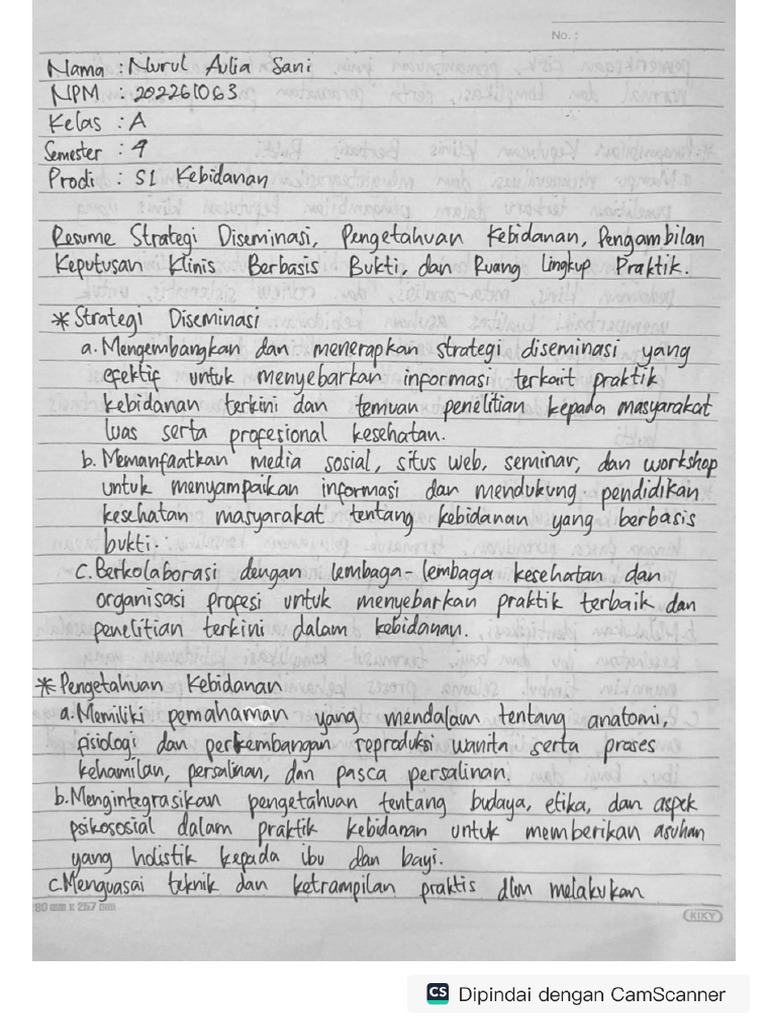 No. :
Nama : Nurul Aulia Sani
NPM : 202261063
Kelas : A
Semester : 4
Prodi : S1 Kebidanan
Resume Strategi Diseminasi, Pengetahuan Kebidanan, Pengambilan
Keputusan Klinis Berbasis Bukti, dan Ruang Lingkup Praktik.
* Strategi Diseminasi
a. Mengembangkan dan menerapkan strategi diseminasi yang
efektif untuk menyebarkan informasi terkait praktik
kebidanan terkini dan temuan penelitian kepada masyarakat
luas serta profesional kesehatan.
b. Memanfaatkan media sosial, situs web, seminar, dan workshop
untuk menyampaikan informasi dan mendukung pendidikan
kesehatan masyarakat tentang kebidanan yang berbasis
bukti.
c. Berkolaborasi dengan lembaga-lembaga kesehatan dan
organisasi profesi untuk menyebarkan praktik terbaik dan
penelitian terkini dalam kebidanan.
* Pengetahuan Kebidanan
a. Memiliki pemahaman yang mendalam tentang anatomi,
fisiologi dan perkembangan reproduksi wanita serta proses
kehamilan, persalinan, dan pasca persalinan.
b. Mengintegrasikan pengetahuan tentang budaya, etika, dan aspek
psikososial dalam praktik kebidanan untuk memberikan asuhan
yang holistik kepada ibu dan bayi.
c. Menguasai teknik dan ketrampilan praktis dlm melakukan
80 mm x 257 mm
KIKY
CS Dipindai dengan CamScanner